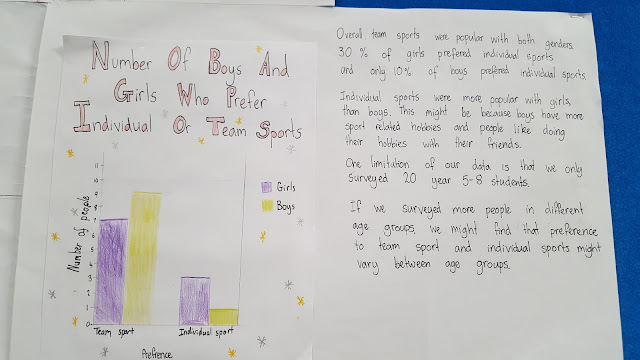 Number Of Boys And
Girls Who Prefer
Individual Or Team Sports
Number of people
11
9
8
7
6
5
4
3
2
1
0
Team sport
Individual sport
Prefrence
Girls
Boys
Overall team sports were popular with both genders.
30 % of girls prefered individual sports
and only 10% of boys prefered individual sports.
Individual sports were more popular with girls,
than boys. This might be because boys have more
sport related hobbies and people like doing
their hobbies with their friends.
One limitation of our data is that we only
surveyed 20 year 5-8 students.
If we surveyed more people in different
age groups, we might find that preference
to team sport and individual sports might
vary between age groups.